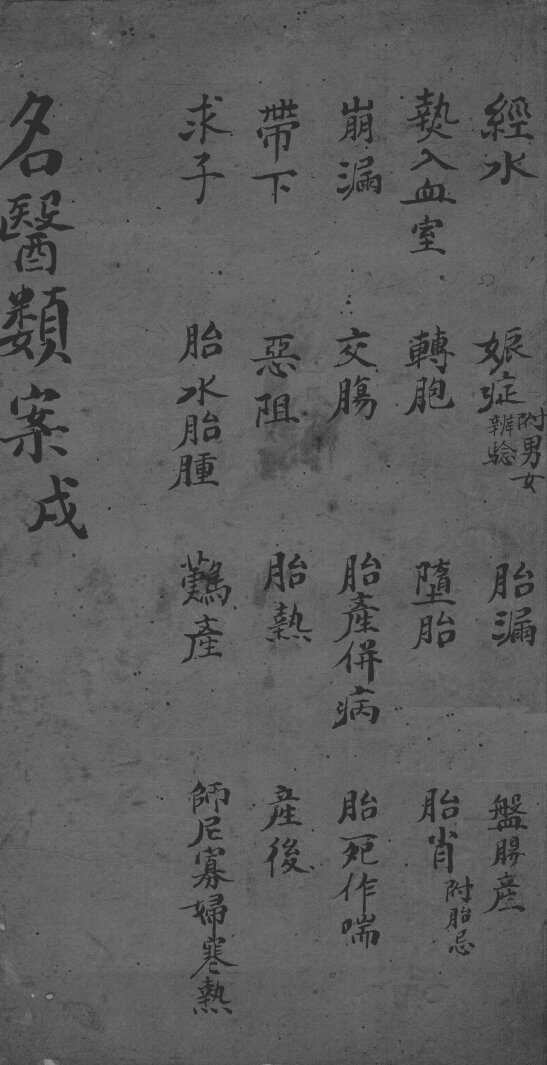 經水　娠症　附男女辨驗　胎漏　盤腸産
熱入血室　轉胞　墮胎　胎肖　附胎忌
崩漏　交腸　胎產併病　胎死作喘
帶下　惡阻　胎熱　産後
求子　胎水胎腫　難產　師尼寡婦寒熱
名醫類案　戌